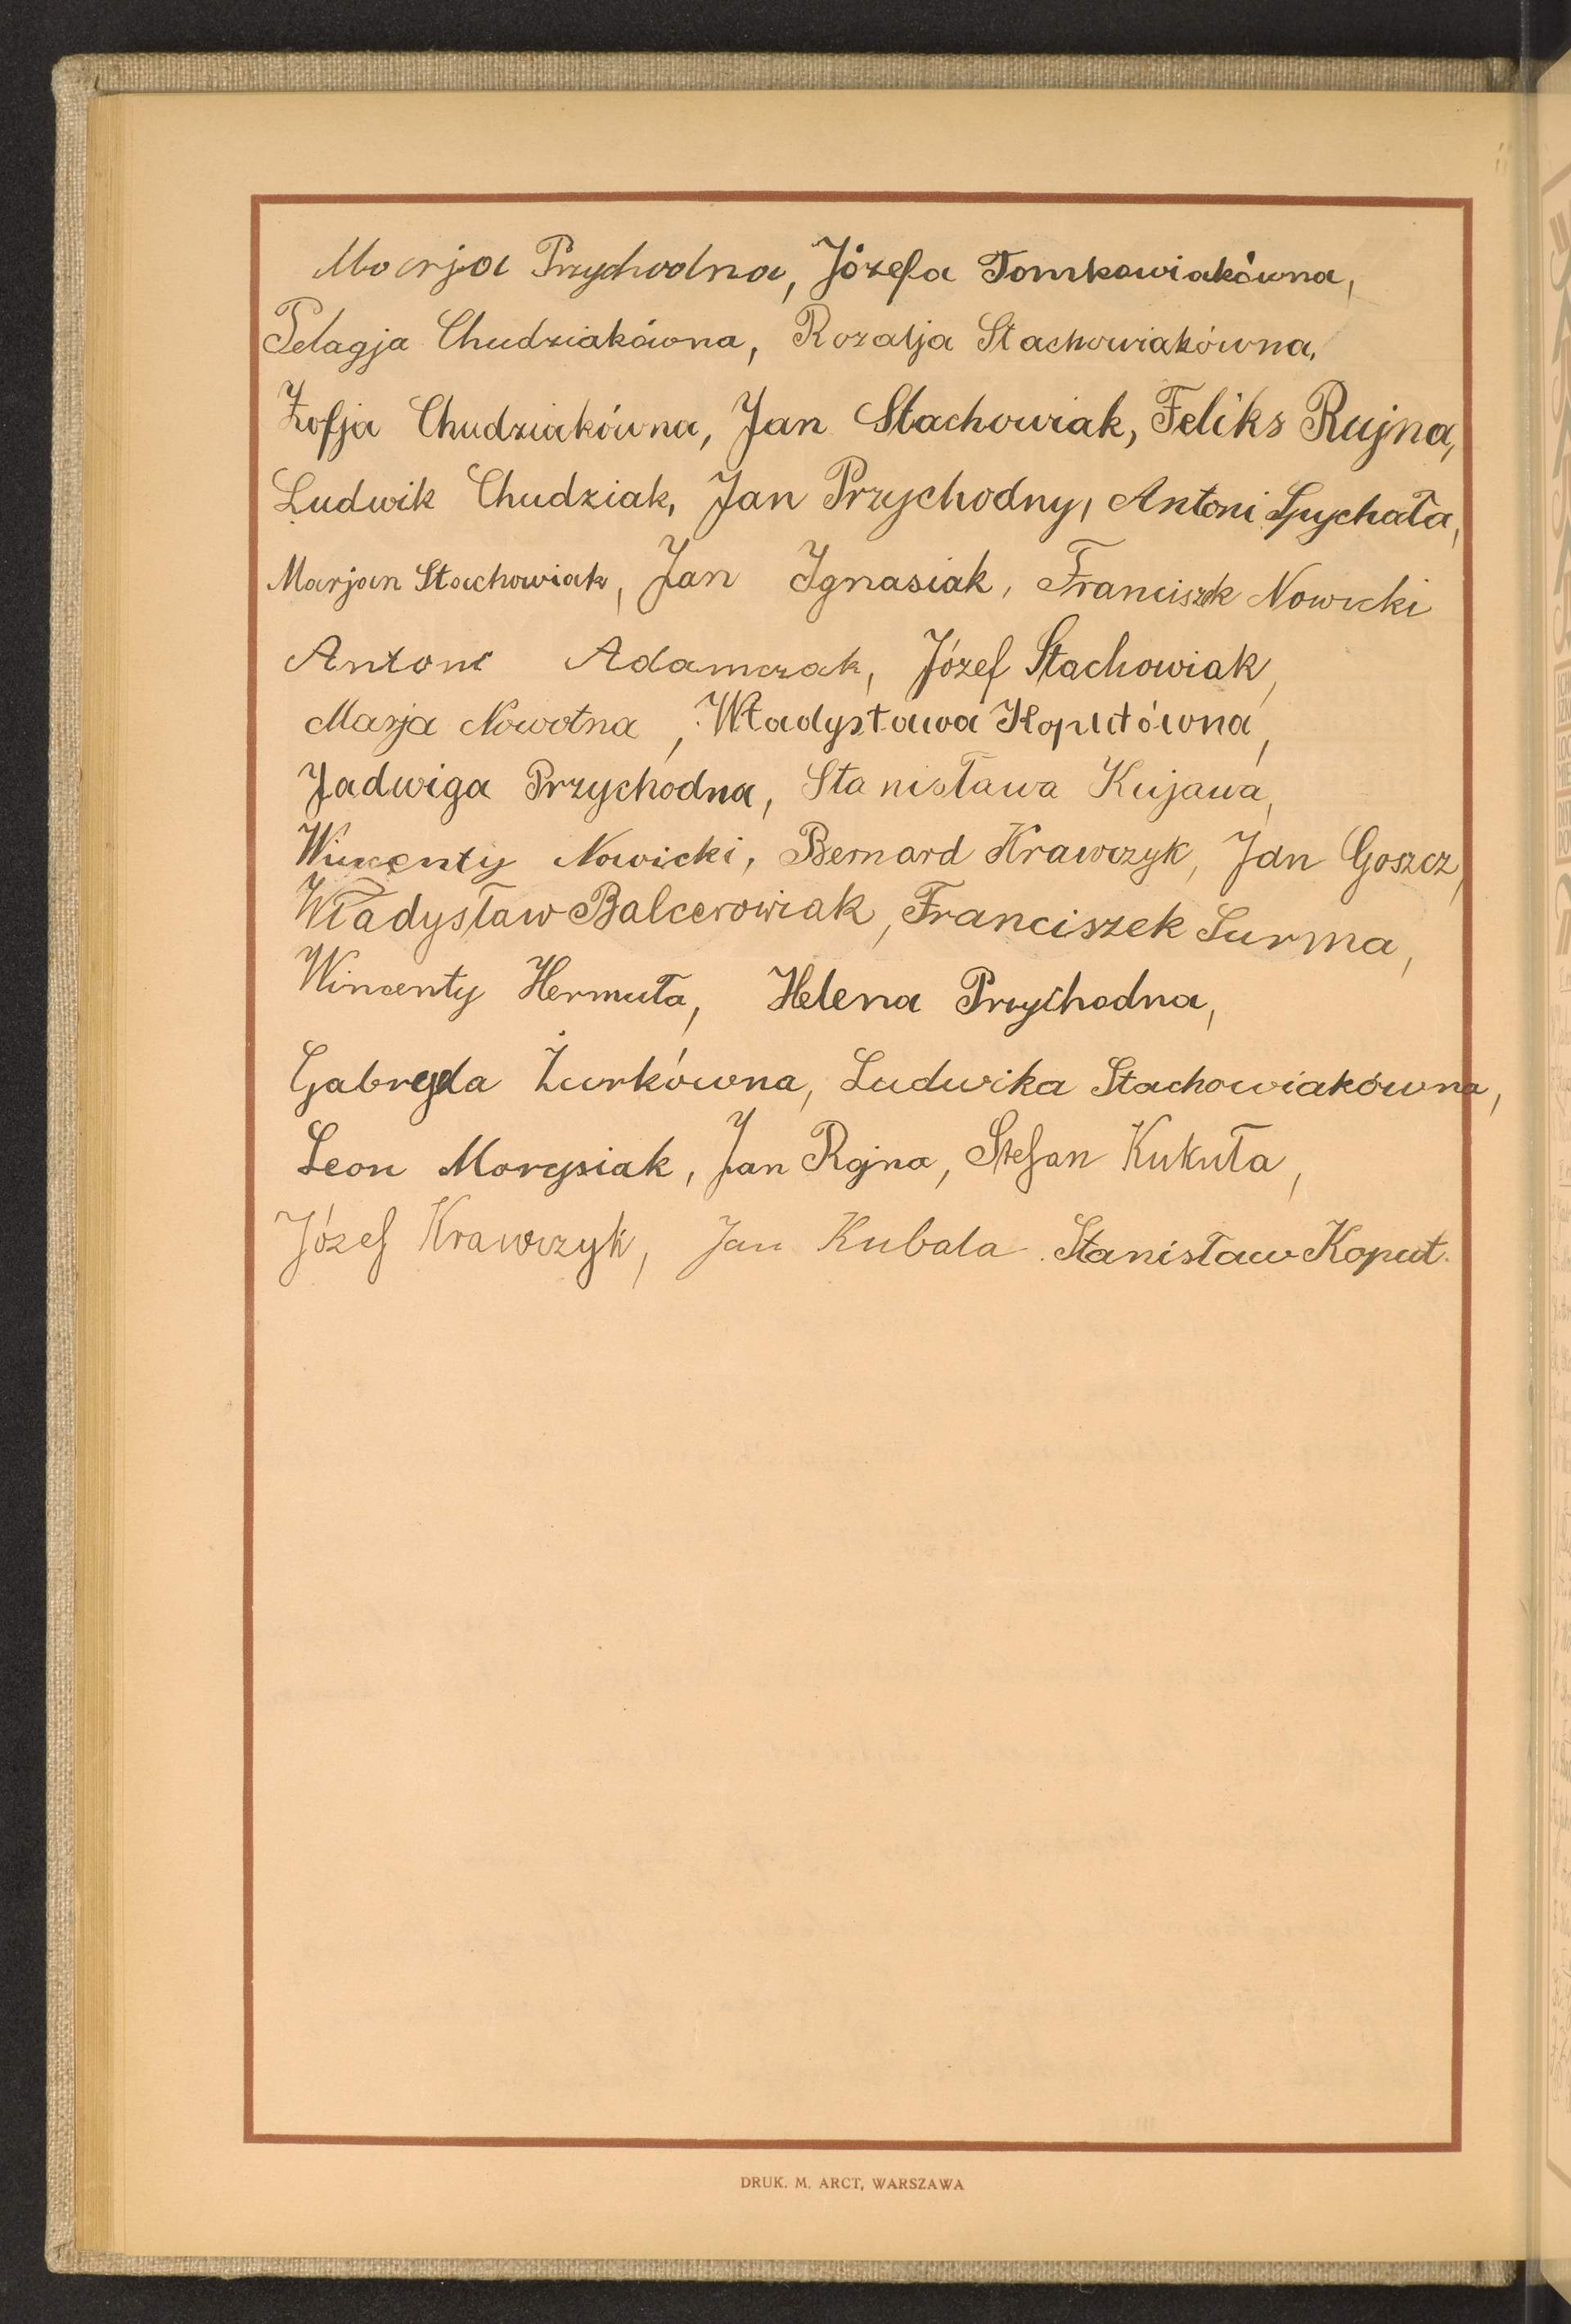 Marja Przychodna, Józefa Tomkowiakówna,
Pelagja Chudziakówna, Rozalja Stachowiakówna,
Zofja Chudziakówna, Jan Stachowiak, Feliks Rujna,
Ludwik Chudziak, Jan Przychodny, Antoni Spychała,
Marjan Stachowiak, Jan Ignasiak, Franciszek Nowicki
Antoni Adamczak, Józef Stachowiak,
Marja Nowotna, Władysława Koputówna,
Jadwiga Przychodna, Stanisława Kujawa,
Wincenty Nowicki, Bernard Krawczyk, Jan Goszcz,
Władysław Balcerowiak, Franciszek Surma,
Wincenty Hermuła, Helena Przychodna,
Gabryela Żurkówna, Ludwika Stachowiakówna,
Leon Morysiak, Jan Rojna, Stefan Kukuła,
Józef Krawczyk, Jan Kubala Stanisław Koput.
DRUK. M. ARCT, WARSZAWA